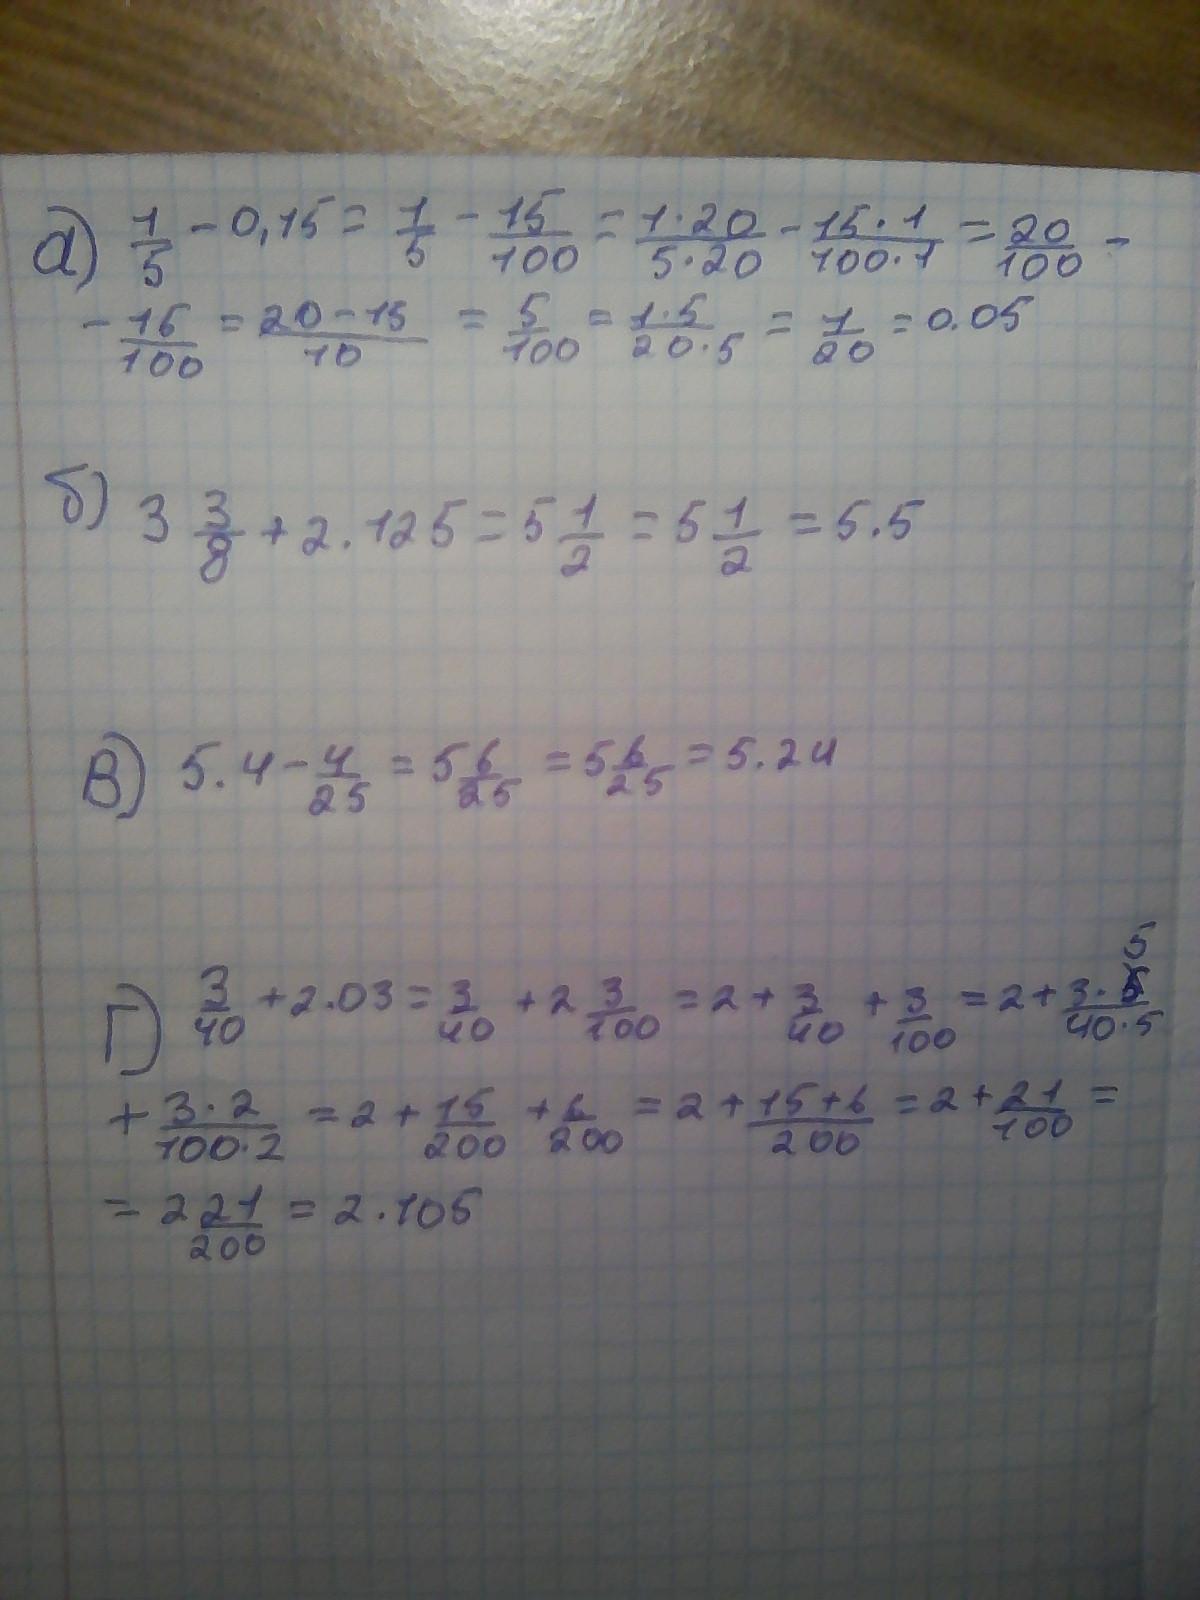 а) 1/5 - 0,15 = 1/5 - 15/100 = 1·20/5·20 - 15·1/100·1 = 20/100 -
- 15/100 = 20-15/10 = 5/100 = 1·5/20·5 = 1/20 = 0.05
б) 3 3/8 + 2.125 = 5 1/2 = 5 1/2 = 5.5
В) 5.4 - 4/25 = 5 6/25 = 5 6/25 = 5.24
Г) 3/40 + 2.03 = 3/40 + 2 3/100 = 2 + 3/40 + 3/100 = 2 + 3·5/40·5
+ 3·2/100·2 = 2 + 15/200 + 6/200 = 2 + 15+6/200 = 2 + 21/100 =
= 2 21/200 = 2.105